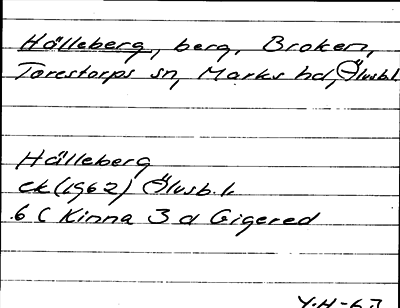 Hälleberg, berg, Broken,
Torestorps sn, Marks hd, Älvsb.l.
Hälleberg
ek (1962) Älvsb.l.
6 C Kinna 3 d Gigered
Y.H-63